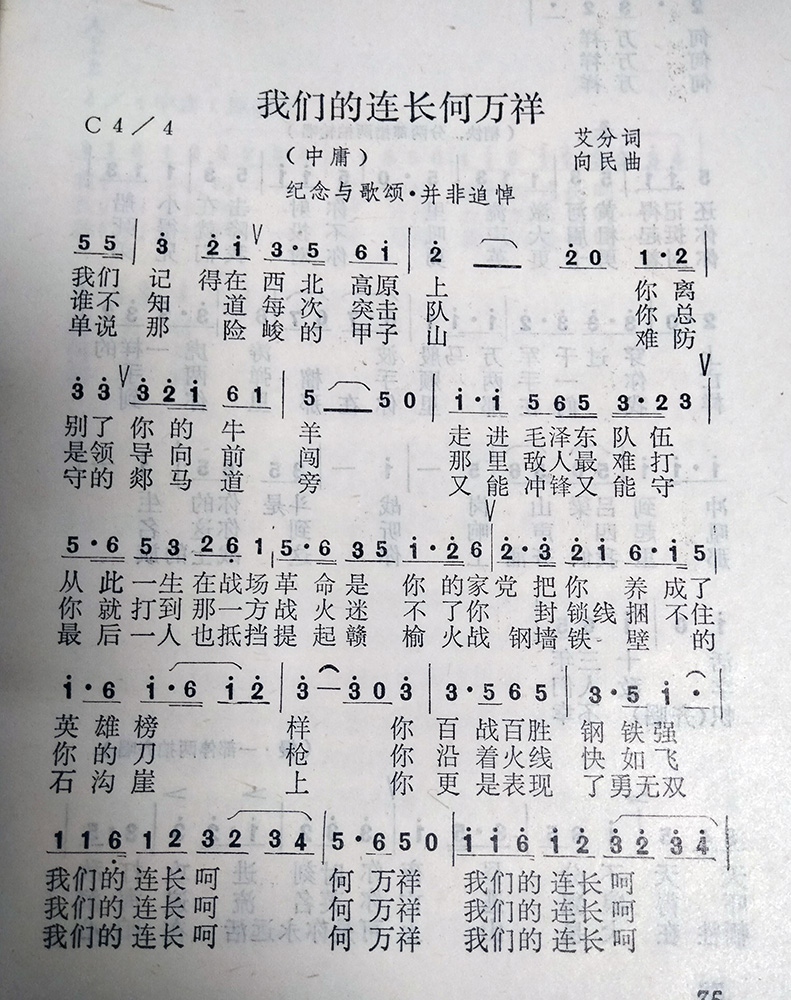 我们的连长何万祥
C 4／4
艾分词
（中庸）
向民曲
纪念与歌颂·并非追悼
5 5 | 3 2 i 3·5 6 i | 2 — 2 0 1·2 |
我们 记 得在 西北 高原 上 你离
谁不 知 道 每次 突击 队 你总
单说 那 险峻的 甲子 山 难防
3 3 3 2 i 6 1 | 5 — 5 0 | i·i 5 6 5 3·2 3 |
别了 你的 牛 羊 走进毛泽东队伍
是领 导向 前 闯 那里敌人最难打
守的 郯马 道 旁 又能冲锋又能守
5·6 5 3 2 6 1 | 5·6 3 5 i·2 6 | 2·3 2 i 6·i 5 |
从此一生在战场 革命是 你的家 党把你 养成了
你就打到那一方 战火迷 不了你 封锁线 捆不住
最后一人也抵挡 提起赣 榆火战 钢墙铁 壁的
i·6 i·6 i 2 | 3 — 3 0 3 | 3·5 6 5 | 3·5 i· |
英雄榜 样 你 百战百胜 钢铁强
你的刀 枪 你 沿着火线 快如飞
石沟崖 上 你 更是表现 了勇无双
1 1 6 1 2 3 2 3 4 | 5·6 5 0 | i i 6 i 2 3 2 3 4 |
我们的连长呵 何万祥 我们的连长呵
我们的连长呵 何万祥 我们的连长呵
我们的连长呵 何万祥 我们的连长呵
75